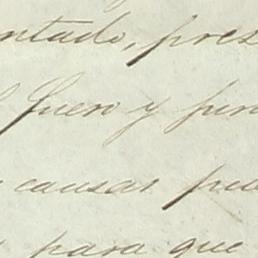 ntado, pres
Juen y jun
causas pu
para que